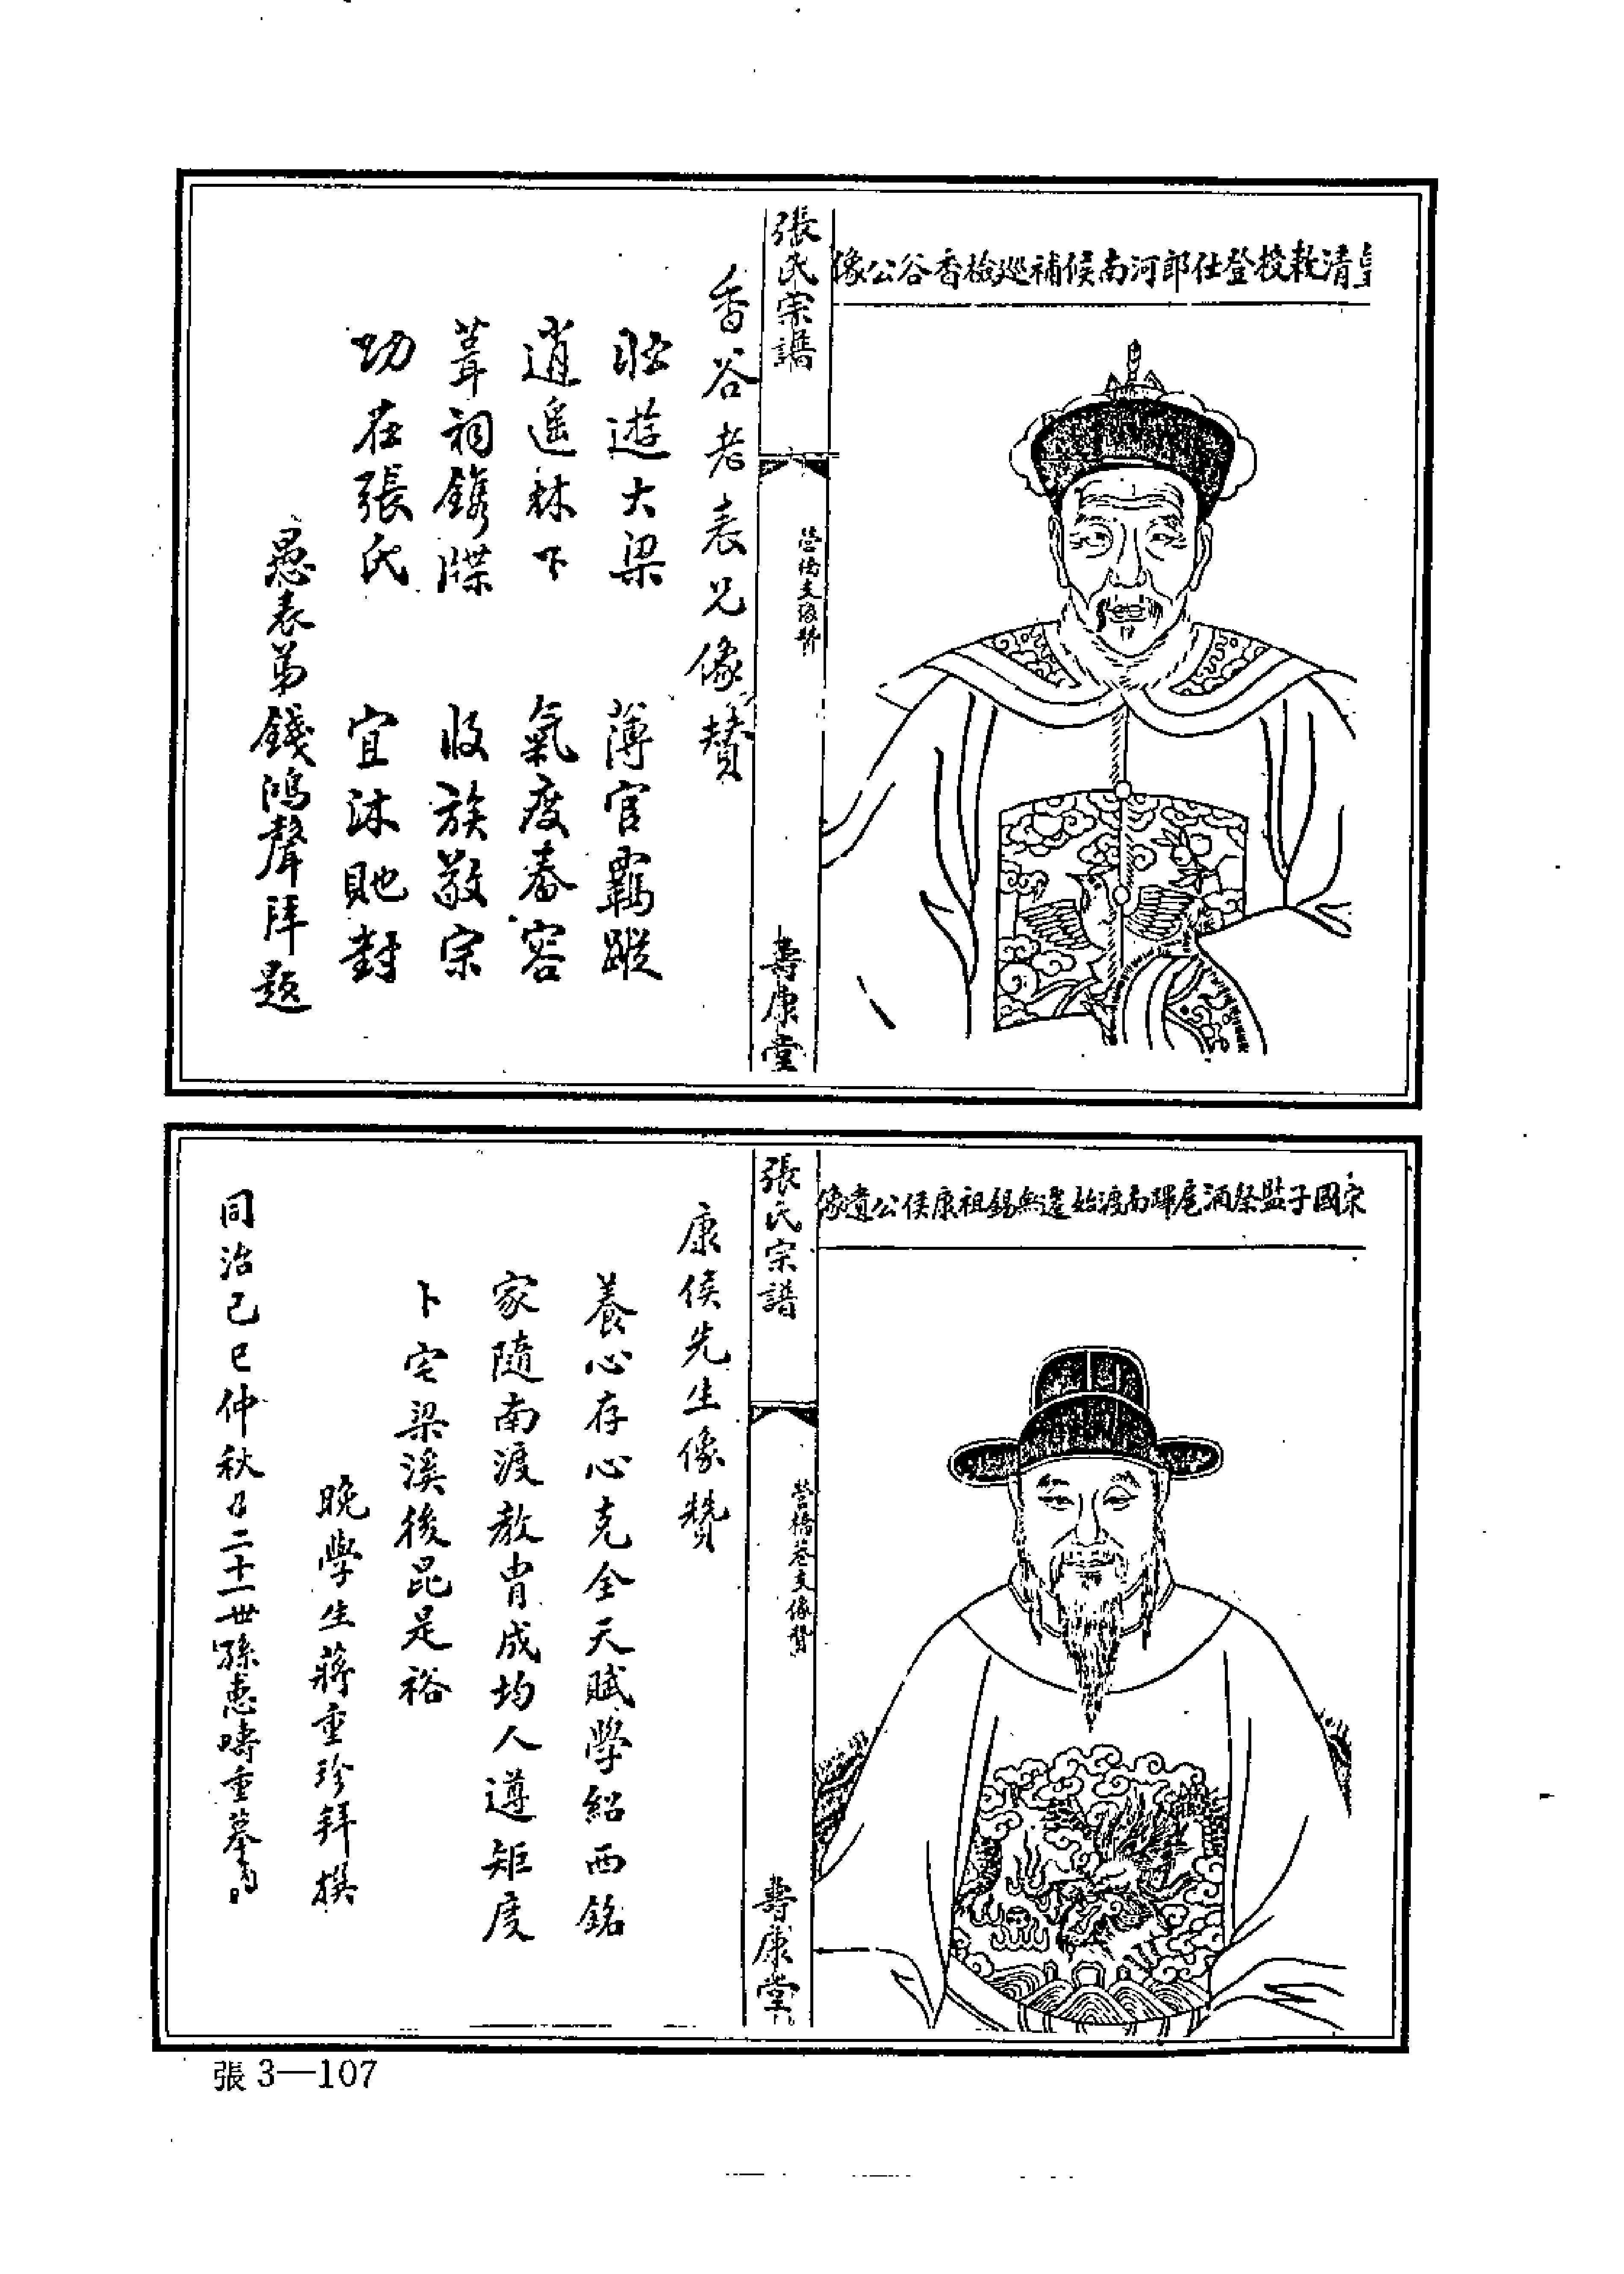 皇清敕授登仕郎河南候補巡檢香谷公像
張氏宗譜
營橋支像贊
壽康堂
香谷老表兄像贊
壯遊大梁 薄宦羈蹤
逍遙林下 氣度春容
葺祠鐫牒 收族敬宗
功在張氏 宜沐貤封
愚表弟錢鴻聲拜題
宋國子監祭酒扈蹕南渡始遷無錫祖康侯公遺像
張氏宗譜
營橋巷支像贊
壽康堂
康侯先生像贊
養心存心克全天賦學紹西銘
家隨南渡教胄成均人遵矩度
卜宅梁溪後昆是裕
晚學生蔣重珍拜撰
同治己巳仲秋月二十一世孫惠疇重摹
張3—107